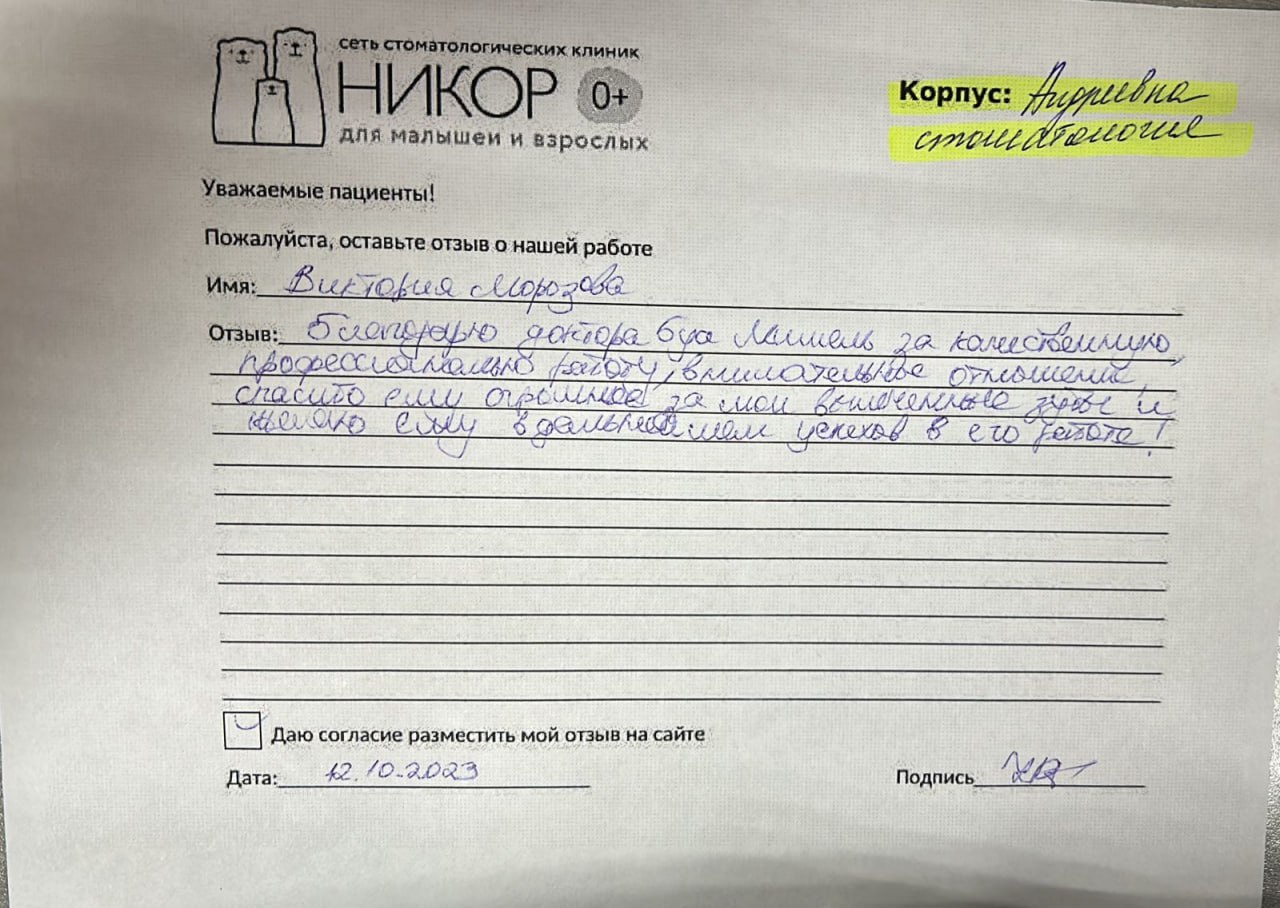 сеть стоматологических клиник
НИКОР 0+
для малышей и взрослых
Корпус: Андреевка
стоматология
Уважаемые пациенты!
Пожалуйста, оставьте отзыв о нашей работе
Имя: Виктория Морозова
Отзыв: Благодарю доктора Буа Мишель за качественную,
профессиональную работу, внимательное отношение,
спасибо ему огромное за мои вылеченные зубы и
желаю ему в дальнейшем успехов в его работе!
Даю согласие разместить мой отзыв на сайте
Дата: 12.10.2023
Подпись